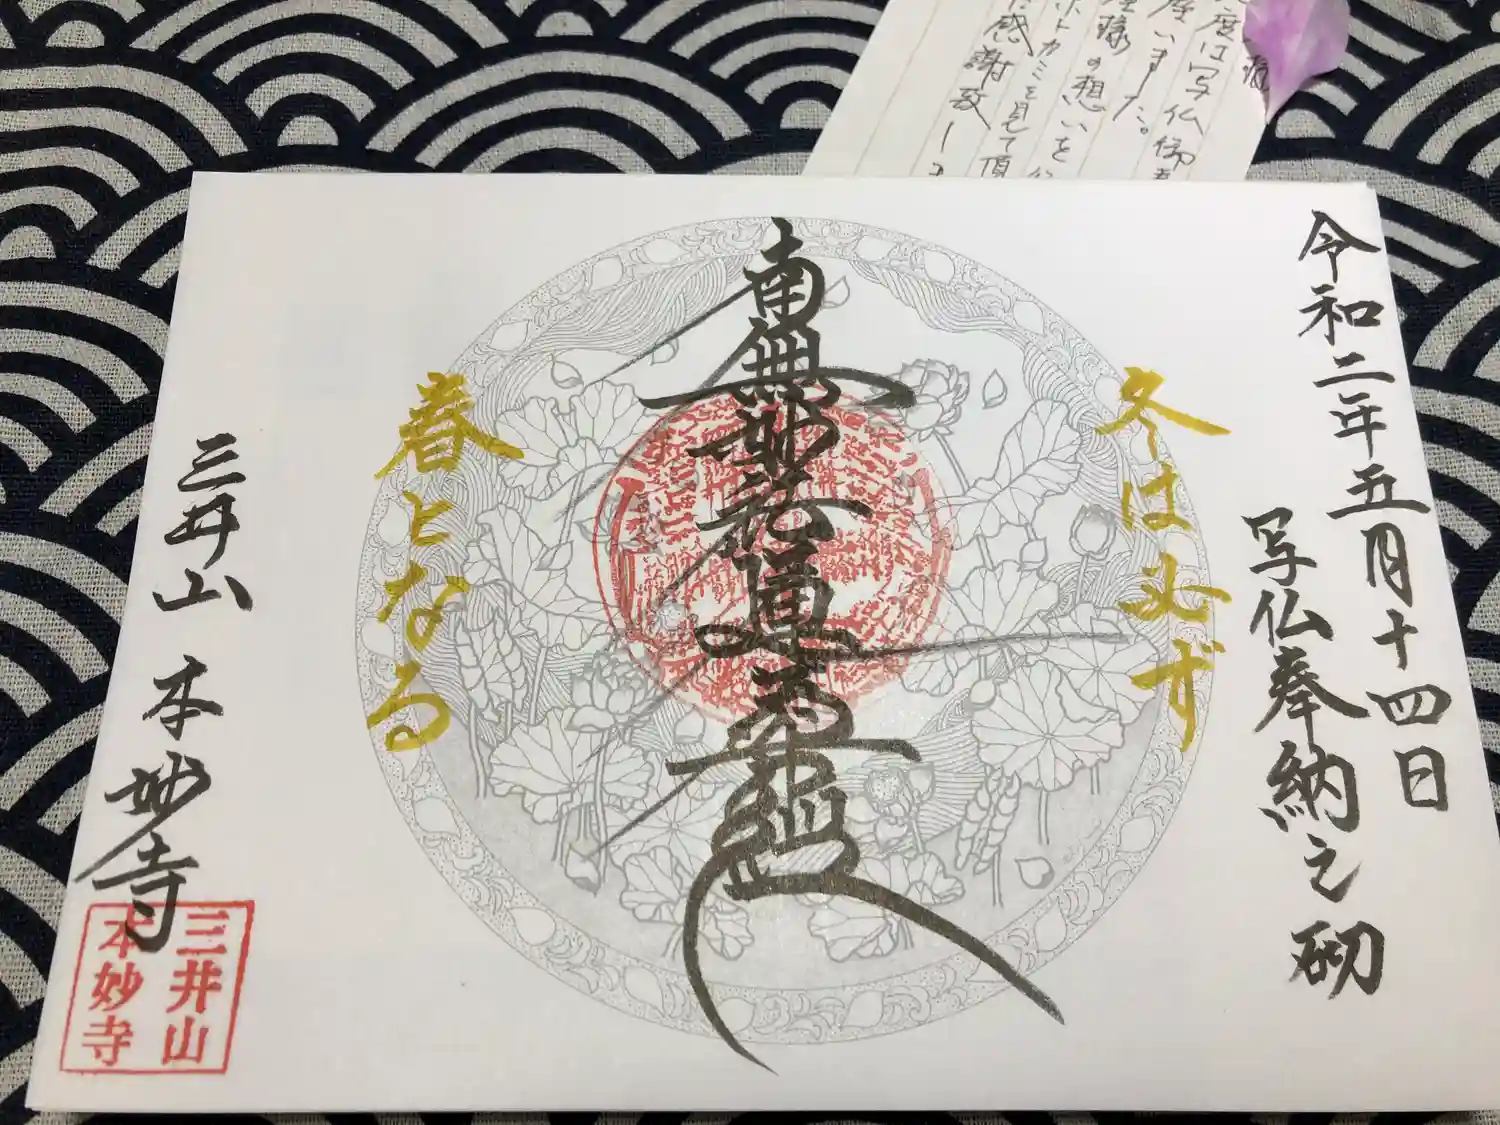 令和二年五月十四日
写仏奉納之砌
冬は必ず
南無妙法蓮華経
春となる
三井山 本妙寺
三井山
本妙寺
度は写仏
座いました。
様の想いを
ホトカミを見て頂
感謝致し